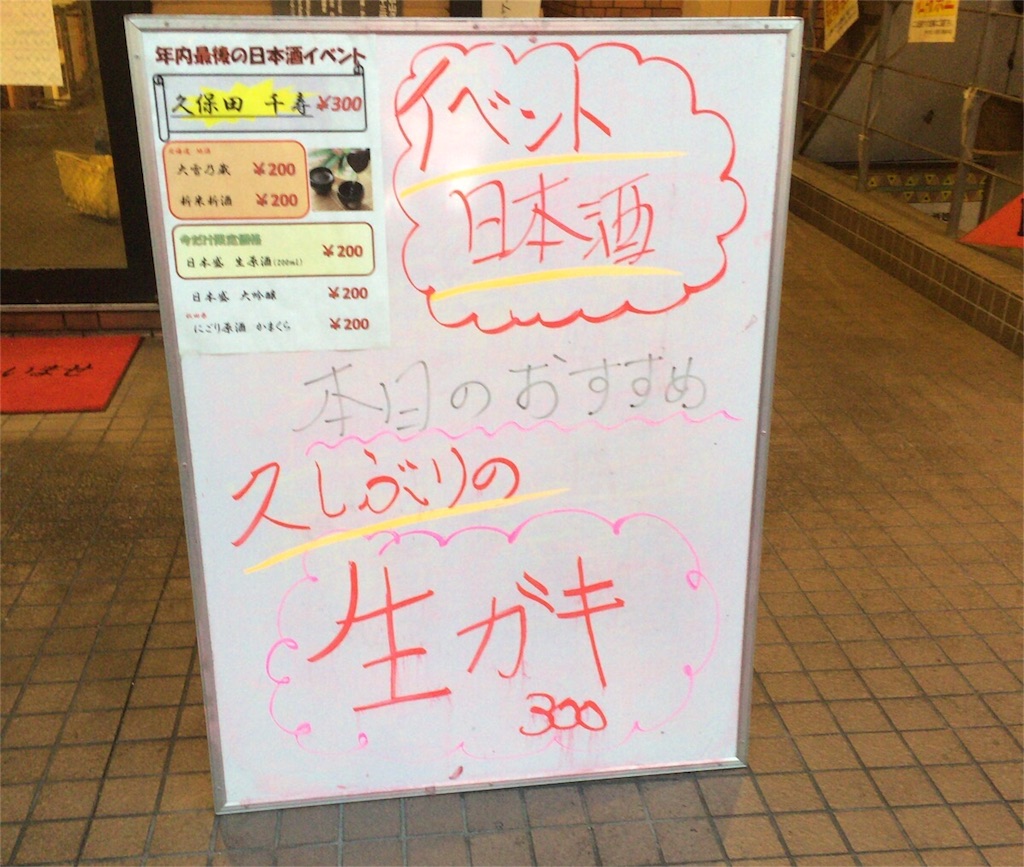 年内最後の日本酒イベント
久保田 千寿 ¥300
北海道 地酒
大雪乃蔵 ¥200
新米新酒 ¥200
今だけ限定価格
日本盛 生原酒(200ml) ¥200
日本盛 大吟醸 ¥200
秋田県
にごり原酒 かまくら ¥200
イベント
日本酒
本日のおすすめ
久しぶりの
生ガキ
300
いませ